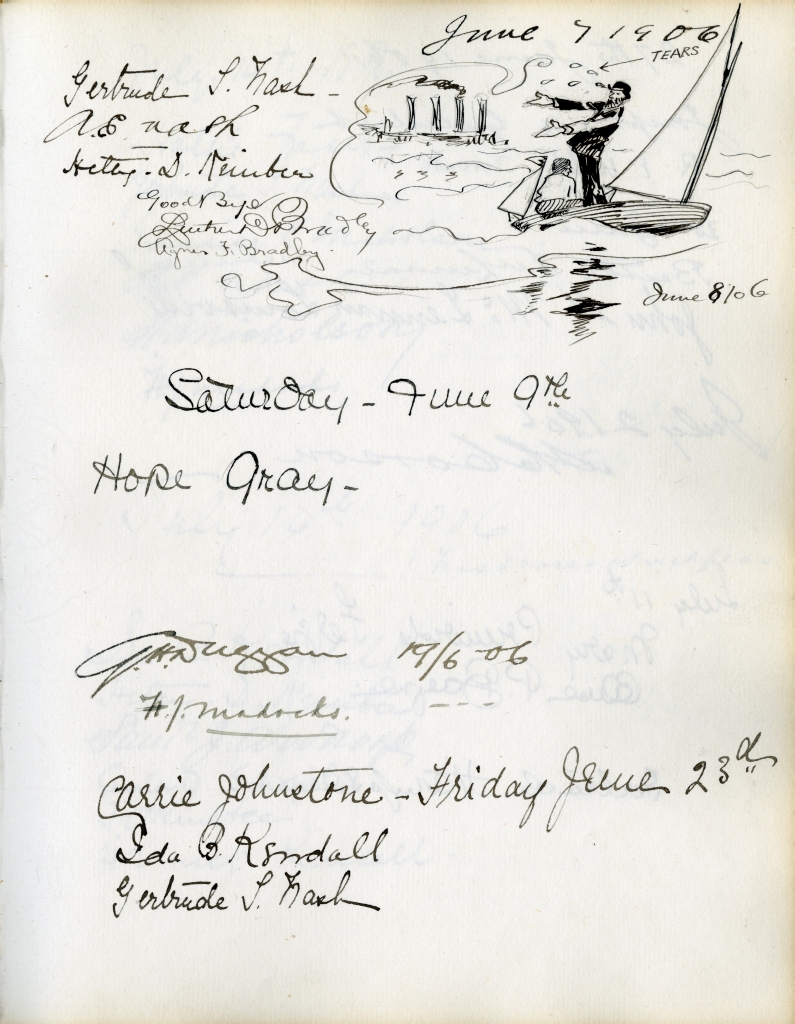 June 7 1906
TEARS
Gertrude S. Nash -
A.E. Nash
Hetty. D. Kimber
Good Bye
D. Bradley
Agnes F. Bradley.
June 8/06
Saturday - June 9th
Hope Gray -
G.H. Duggan 19/6-06
H.J. Madocks. - - -
Carrie Johnstone - Friday June 23d
Ida B. Kendall
Gertrude S. Nash